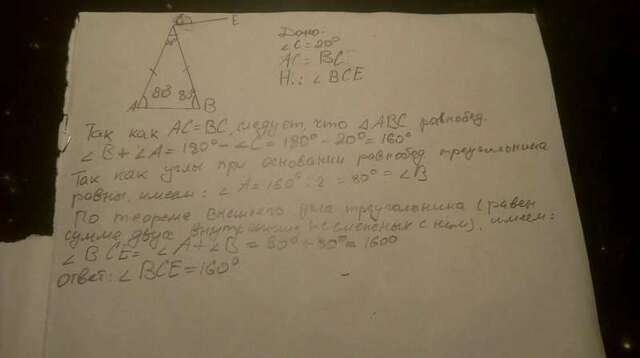 E
Дано:
∠C=20°
AC=BC
Н.: ∠BCE
A 80 80 B
Так как AC=BC, следует, что △ABC равнобед.
∠B+∠A=180°-∠C=180°-20°=160°
Так как углы при основании равнобед треугольника
равны, имеем: ∠A=160°:2=80°=∠B
По теореме внешнего угла треугольника (равен
сумме двух внутренних не смежных с ним), имеем:
∠BCE=∠A+∠B=80°+80°=160°
Ответ: ∠BCE=160°